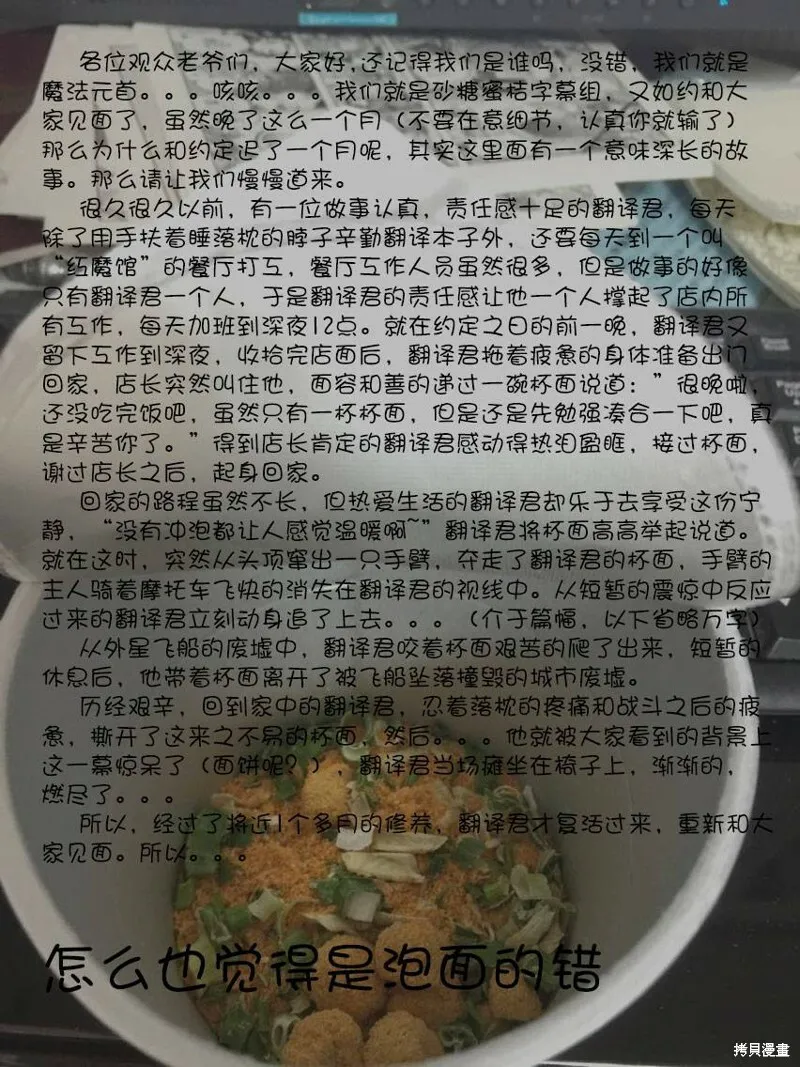 各位观众老爷们，大家好,还记得我们是谁吗，没错，我们就是
魔法元首。。。咳咳。。。我们就是砂糖蜜桔字幕组，又如约和大
家见面了，虽然晚了这么一个月（不要在意细节，认真你就输了）
那么为什么和约定迟了一个月呢，其实这里面有一个意味深长的故
事。那么请让我们慢慢道来。
很久很久以前，有一位做事认真，责任感十足的翻译君，每天
除了用手扶着睡落枕的脖子辛勤翻译本子外，还要每天到一个叫
“红魔馆”的餐厅打工，餐厅工作人员虽然很多，但是做事的好像
只有翻译君一个人，于是翻译君的责任感让他一个人撑起了店内所
有工作，每天加班到深夜12点。就在约定之日的前一晚，翻译君又
留下工作到深夜，收拾完店面后，翻译君拖着疲惫的身体准备出门
回家，店长突然叫住他，面容和善的递过一碗杯面说道：”很晚啦，
还没吃完饭吧，虽然只有一杯杯面，但是还是先勉强凑合一下吧，真
是辛苦你了。”得到店长肯定的翻译君感动得热泪盈眶，接过杯面，
谢过店长之后，起身回家。
回家的路程虽然不长，但热爱生活的翻译君却乐于去享受这份宁
静，“没有冲泡都让人感觉温暖啊~”翻译君将杯面高高举起说道。
就在这时，突然从头顶窜出一只手臂，夺走了翻译君的杯面，手臂的
主人骑着摩托车飞快的消失在翻译君的视线中。从短暂的震惊中反应
过来的翻译君立刻动身追了上去。。。（介于篇幅，以下省略万字）
从外星飞船的废墟中，翻译君咬着杯面艰苦的爬了出来，短暂的
休息后，他带着杯面离开了被飞船坠落撞毁的城市废墟。
历经艰辛，回到家中的翻译君，忍着落枕的疼痛和战斗之后的疲
惫，撕开了这来之不易的杯面，然后。。。他就被大家看到的背景上
这一幕惊呆了（面饼呢？），翻译君当场瘫坐在椅子上，渐渐的，
燃尽了。。。
所以，经过了将近1个多月的修养，翻译君才复活过来，重新和大
家见面。所以。。。
怎么也觉得是泡面的错
拷貝漫畫